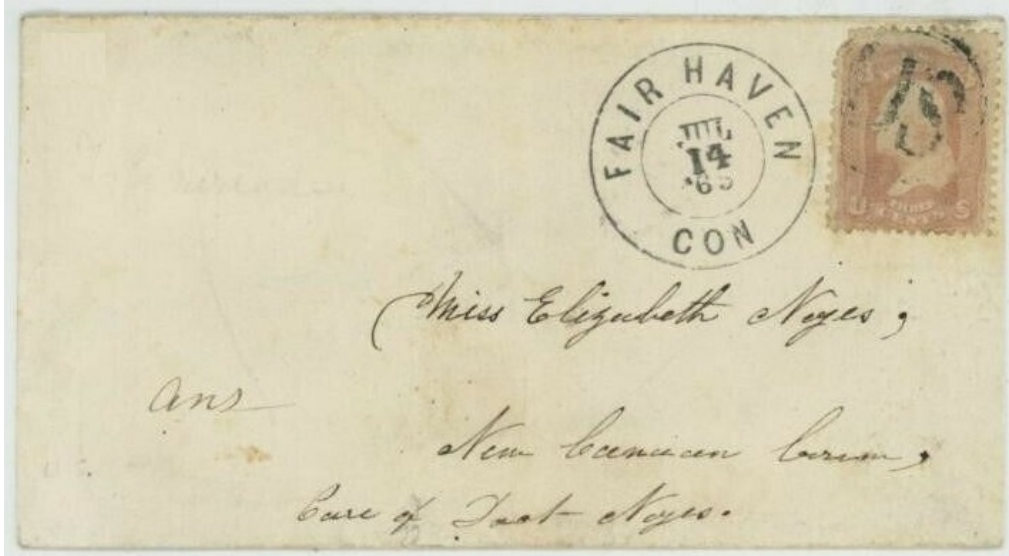 FAIR HAVEN
JUL
14
CON
U THREE CENTS S
Miss Elizabeth Noyes,
ans
New Canaan Conn,
Care of Doct Noyes.